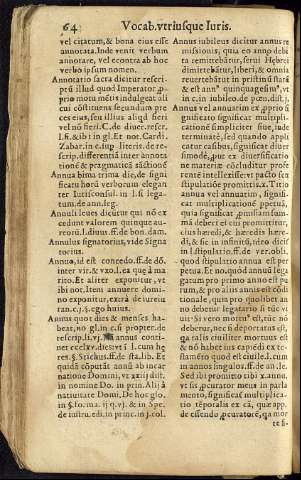 64 Vocab. vtriusque Iuris.
vel citatum, & bona eius esse
annotata. Inde venit verbum
annotare, vel econtra ab hoc
verbo ipsum nomen.
Annotatio sacra dicitur rescri-
ptū illud quod Imperator, p
prio motu mētis indulget ali
cui cōstitutus secundum pre
ces eius, seu illius aliqd fieri
vel nō fieri. C. de diuer. rescr.
l. fi. & ibi in gl. Et not. Cardi.
Zabar. in c. sup literis. de re-
scrip. differētiā inter annota
tionē & pragmaticā sāctionē
Annua bima trima die, de signi
ficare horū verborum elegan
ter Iurisconsul. in l. si lega-
tum. de ann. leg.
Annuli leues dicitur qui nō ex
cedunt valorem quinque au-
reorū. l. diuus. ff. de bon. dam.
Annulus signatorius, vide Signa
torius.
Annuo, id est concedo. ff. de dō.
inter vir. & vxo. l. ea que à ma
rito. Et aliter exponitur, vt
ibi not. Item annuere domi-
no exponitur, extrà de iureiu
ran. c. j. §. ego huius.
Annus quot dies & menses ha-
beat, no gl. in c. si propter. de
rescrip. li. vj. annus conti-
net ccclxv. dies: vt s l. cum hę
res. §. Stichus. ff. de sta. lib. Et
quidā cōputāt annū ab incar
natione Domini, vt xxiij dist.
in nomine Do. in prin. Alij à
natiuitate Domi. De hoc glo.
in §. fo. ma. ij q. vj. & in Spe.
de instru. edi. in princ. in j. col.
Annus iubileus dicitur annus re
missionis, quia eo anno debi-
ta remittebātur, serui Hebręi
dimittebātur, liberi, & omnia
reuertebātur in pristinū statū
& est ann⁹ quinquagesim⁹, vt
in c. in iubileo. de pœn. dist. j.
Annus vel annuatim ex, pprio si
gnificato significat multipli-
cationē simpliciter siue, iude
terminatè, sed quando appli
catur casibus, significat diuer
simodè, put ex diuersificatio
ne materiæ cōcluditur profe
rentē intellexisse vt pacto seu
stipulatiōe promittitax. Titio
annua vel annuatim, signifi-
cat multiplicationē ppetuā,
quia significat, pmissam sum
mā deberi etiā promittitur,
eius hæredi, & hæredis hære
di, & sic in infinitū, idco dici
in l. stipulatio. ff. de ver. obli.
quod stipulatio annua est per
petua. Et no. quòd annuū lega
gatum pro primo anno est pu
rum, & pro alijs annis est cōdi
tionale, quia pro quolibet an
no debetur legatario si tūc vi
uit: Si vero mort⁹ est, tūc nō
deberur, nec si deportatus est,
qa talis ciuiliter mortuus est
& nō habet ius capiēdi ex te-
stamēto quod est ciuile. l. cum
in annos singulos. ff. de an. le.
Sed ibi promitto tibi x. annui,
vt sis, pcurator meus in parla
mento, significat multiplica-
tio tēporalis ex cā, quæ appa-
de essendo, pcuratorē, qa mor
te fi-